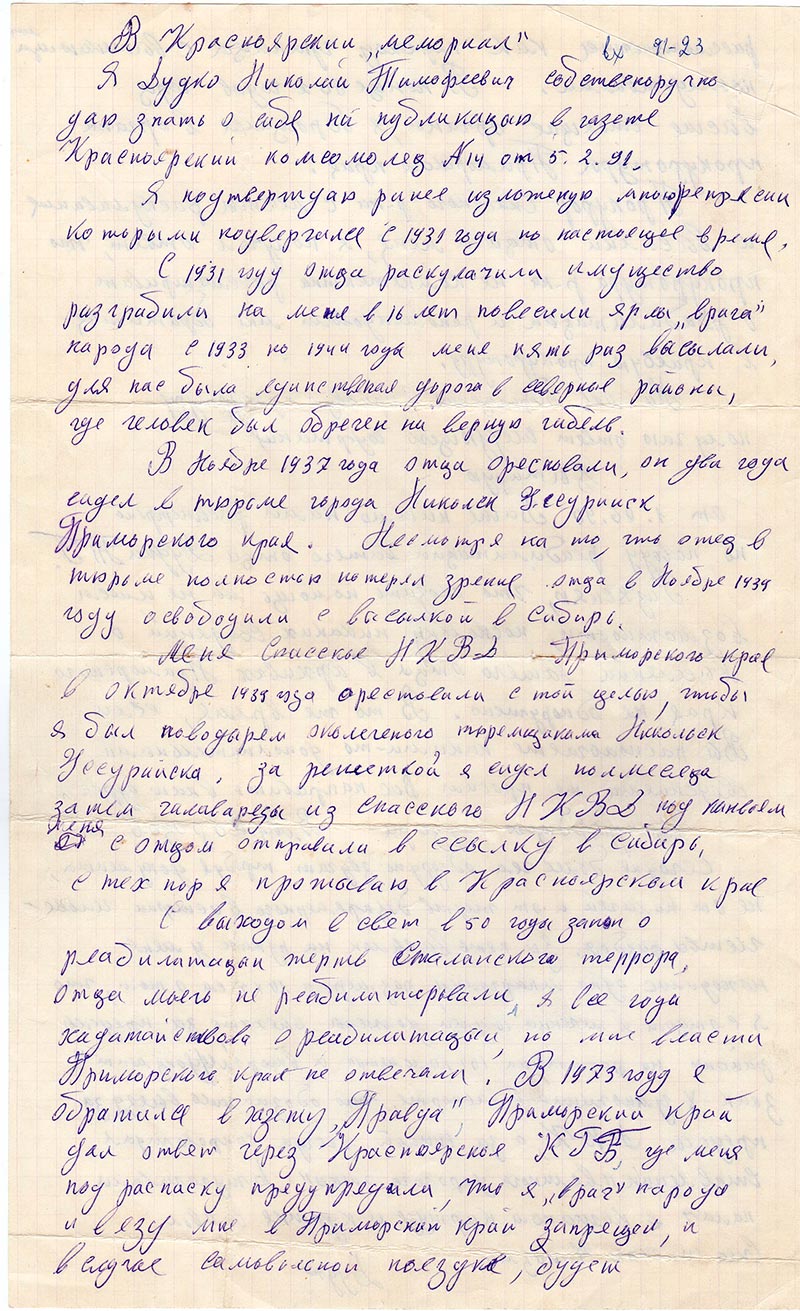 В Красноярский „мемориал" вх 91-23
Я Дудко Николай Тимофеевич собственоручно
даю знать о себе на публикацыю в газете
Красноярский комсомолец N14 от 5.2.91.
Я подтверждаю ранее изложеную мною репресии
которыми подвергался с 1931 года по настоящее время.
С 1931 году отца раскулачили имущество
разграбили на меня в 16 лет повесили ярлы „врага"
народа с 1933 по 1944 годы меня пять раз высылали,
для нас была единственая дорога в северные районы,
где человек был обречен на верную гибель.
В Ноябре 1937 года отца орестовали, он два года
сидел в тюрьме города Николск Уссурийск
Приморского края. Несмотря на то, что отец в
тюрьме полностью потерял зрение отца в Ноябре 1939
году освободили с высылкой в сибирь.
Меня Спасское НКВД Приморского края
в октябре 1939 года орестовали с той целью, чтобы
я был поводарем околеченого тюремщиками Никольск
Уссурийска, за решеткой я сидел полмесеца
затем чилавареды из Спасского НКВД под канвоем
меня с отцом отправили в ссылку в сибирь,
с тех пор я проживаю в Красноярском крае
С выходом в свет в 50 годы закон о
реабилитации жертв Сталинского террора,
отца моего не реабилитировали, я все года
хадатайствова о реабилитацыи, но мне власти
Приморского края не отвечали. В 1973 году я
обратился в газету „Правда", Приморский край
дал ответ через Красноярское КГБ, где меня
под расписку предупредили, что я „враг" народа
и въезд мне в Приморский край запрещен, и
в случае самовольной поездки, будет